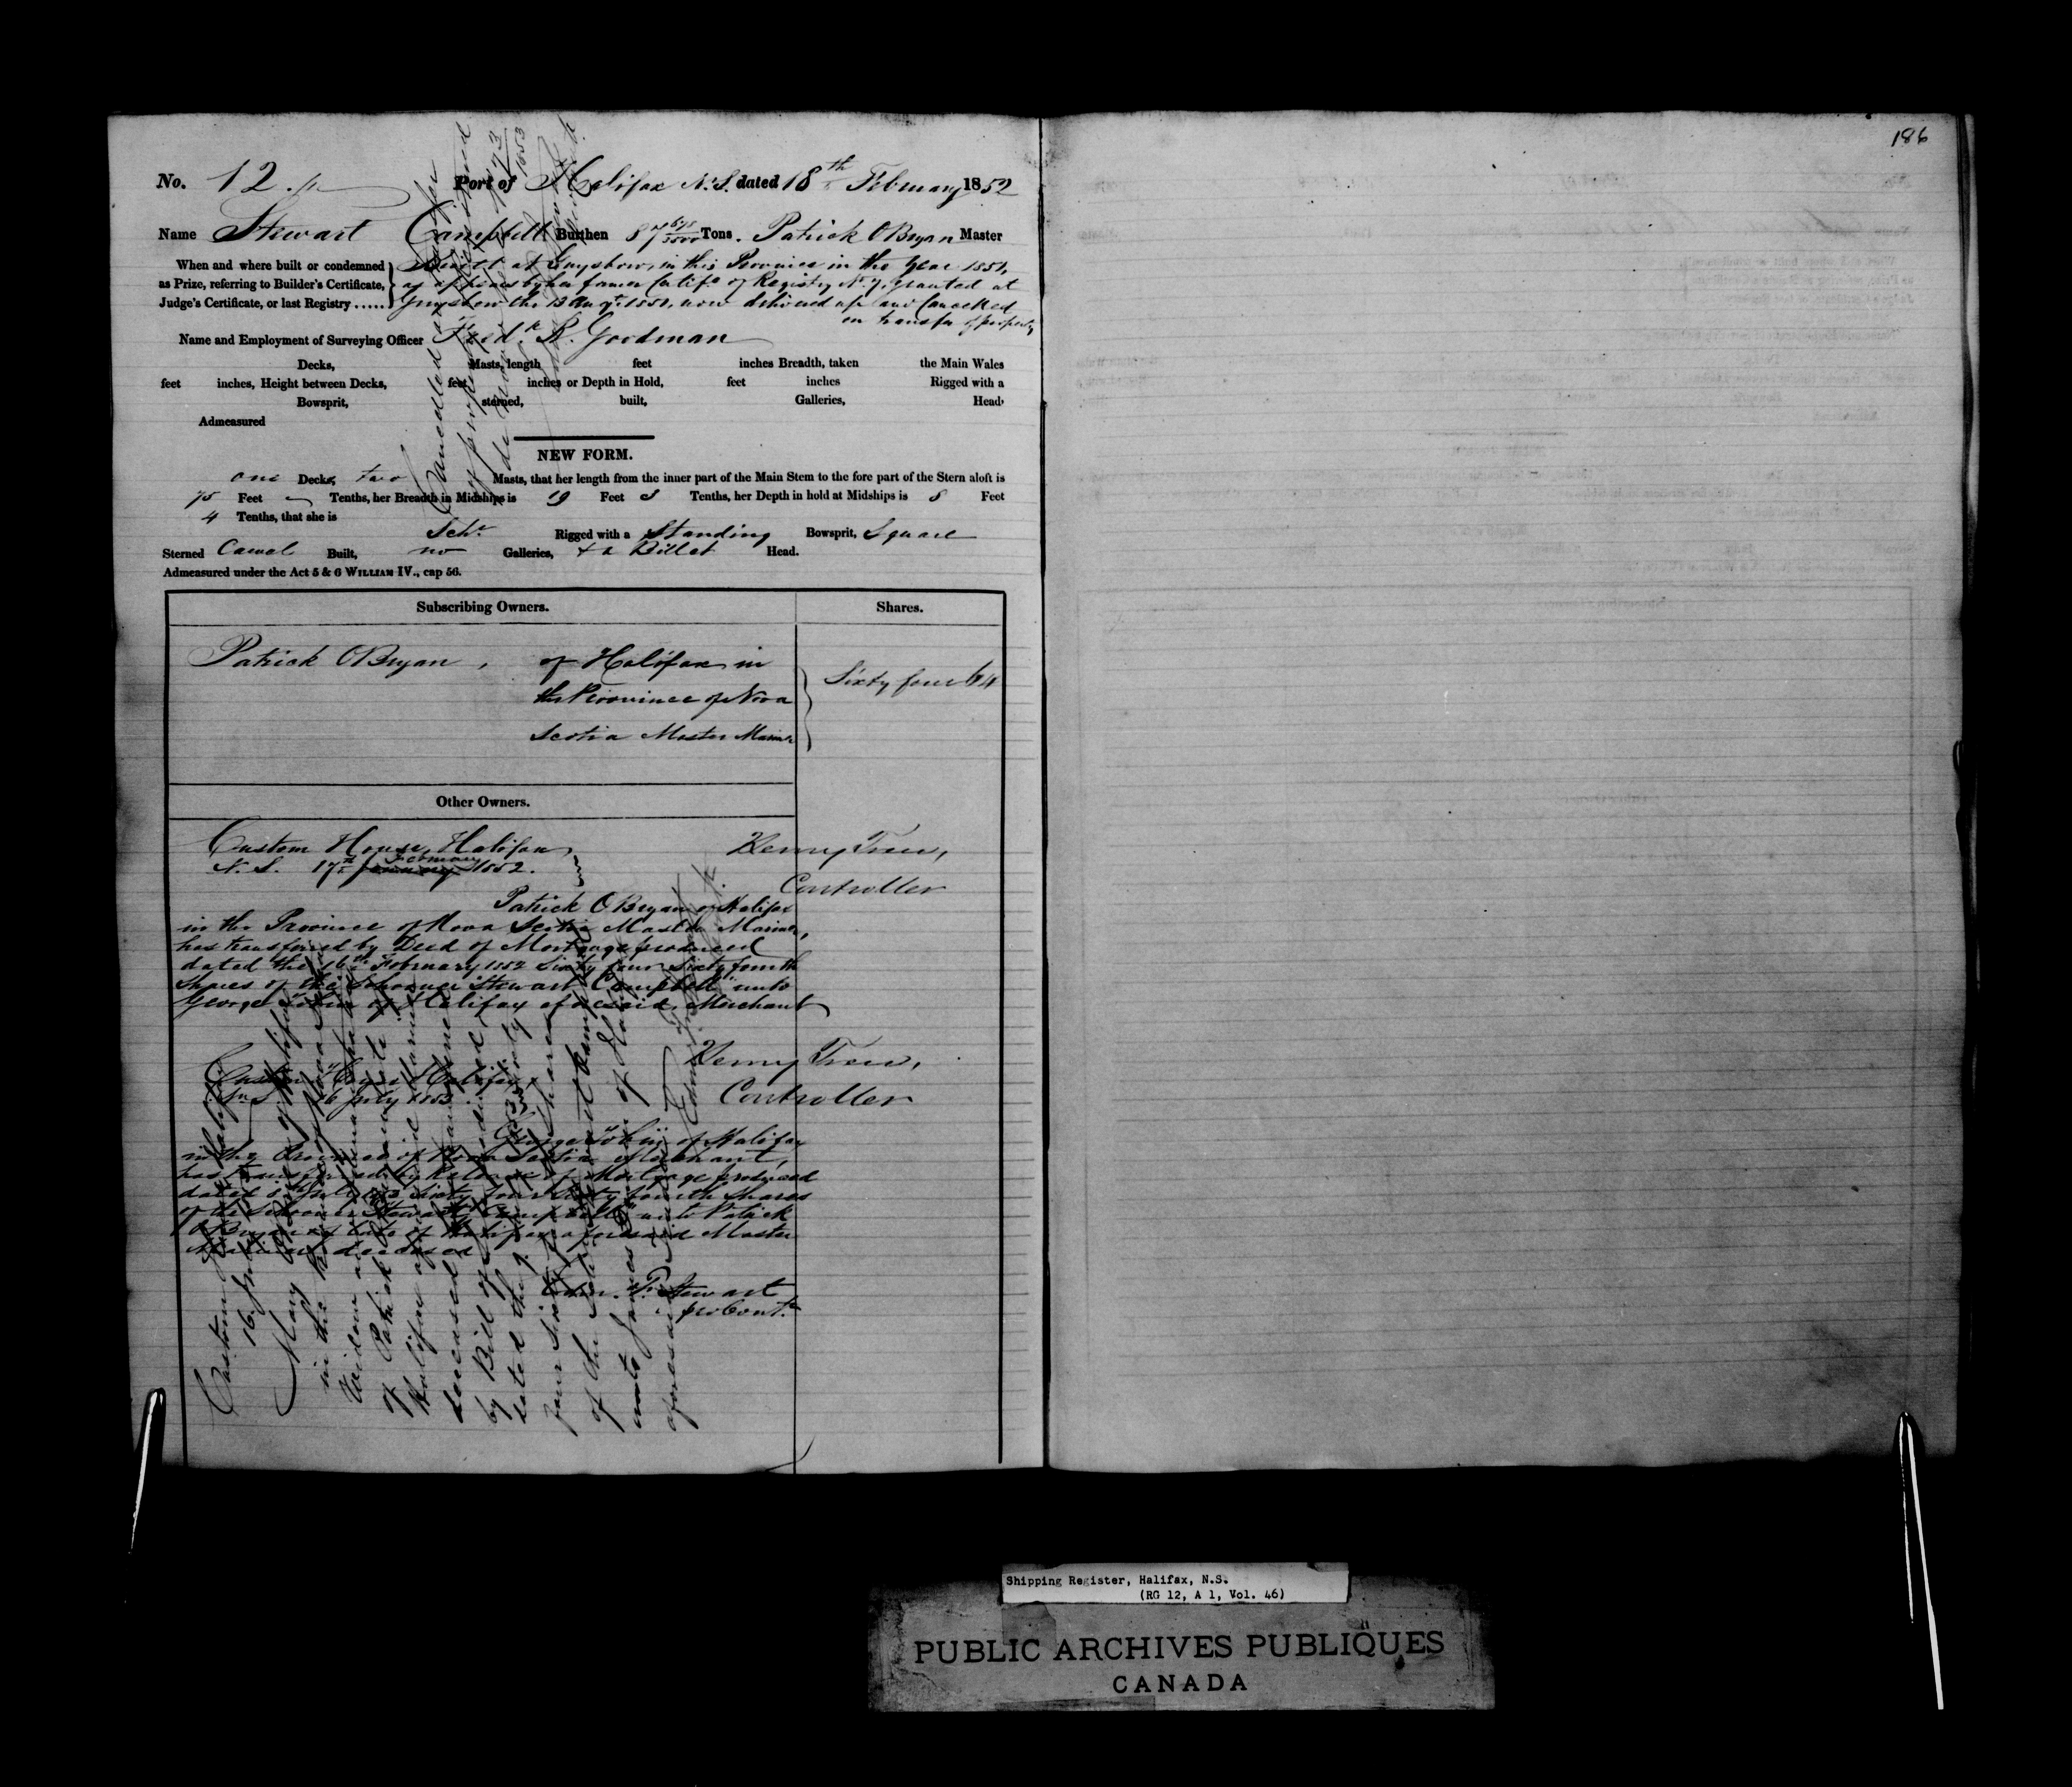 186
No. 12 Port of Halifax N.S. dated 18th February 1852
Name Stewart Campbell Burthen 87 Tons. Patrick OBryan Master
When and where built or condemned
as Prize, referring to Builder's Certificate,
Judge's Certificate, or last Registry .....
Built at Guysboro, in this Province in the Year 1851,
as appears by her former Certife of Registry No 7, granted at
Guysboro the 13 Augt. 1851, now delivered up and Cancelled
on transfer of property
Name and Employment of Surveying Officer Fredk R. Goodman
Decks, Masts, length feet inches Breadth, taken the Main Wales
feet inches, Height between Decks, feet inches or Depth in Hold, feet inches Rigged with a
Bowsprit, sterned, built, Galleries, Head,
Admeasured
NEW FORM.
one Decks, two Masts, that her length from the inner part of the Main Stem to the fore part of the Stern aloft is
75 Feet Tenths, her Breadth in Midships is 19 Feet Tenths, her Depth in hold at Midships is 8 Feet
4 Tenths, that she is
Schr. Rigged with a Standing Bowsprit, Square
Sterned Carvel Built, no Galleries, & a Billet Head.
Admeasured under the Act 5 & 6 WILLIAM IV., cap 56.
Subscribing Owners. Shares.
Patrick OBryan, of Halifax in
the Province of Nova
Scotia Master Marinr
Sixty four 64
Other Owners.
Custom House, Halifax
N.S. 17th January February 1852.
Henry Trew,
Controller
Patrick OBryan of Halifax
in the Province of Nova Scotia Master Mariner,
has transferred by Deed of Mortgage produced
dated the 16th February 1852 Sixty four Sixty fourth
Shares of the Schooner "Stewart Campbell" unto
George Tobin of Halifax aforesaid, Merchant
Custom House Halifax,
N.S. 16 July 1853
Henry Trew,
Controller
George Tobin of Halifax
in the Province of Nova Scotia Merchant,
has transferred by Release of Mortgage produced
dated July 1853 Sixty four Sixty fourth Shares
of the Schooner "Stewart Campbell" unto Patrick
OBryan of late of Halifax aforesaid Master
Mariner deceased
Edm. P. Stewart
pro Contr.
Custom House Halifax
16 July
Mary OBryan of Halifax
in the Province of Nova Scotia
Widow
of Patrick OBryan late
Halifax aforesaid Mariner
deceased has transferred
by Bill of Sale produced
dated the
four Sixty fourth Shares
of the Schr Stewart Campbell
unto James of Halifax
aforesaid
Cancelled
of property
de novo No 73
1853
Shipping Register, Halifax, N.S.
(RG 12, A 1, Vol. 46)
PUBLIC ARCHIVES PUBLIQUES
CANADA